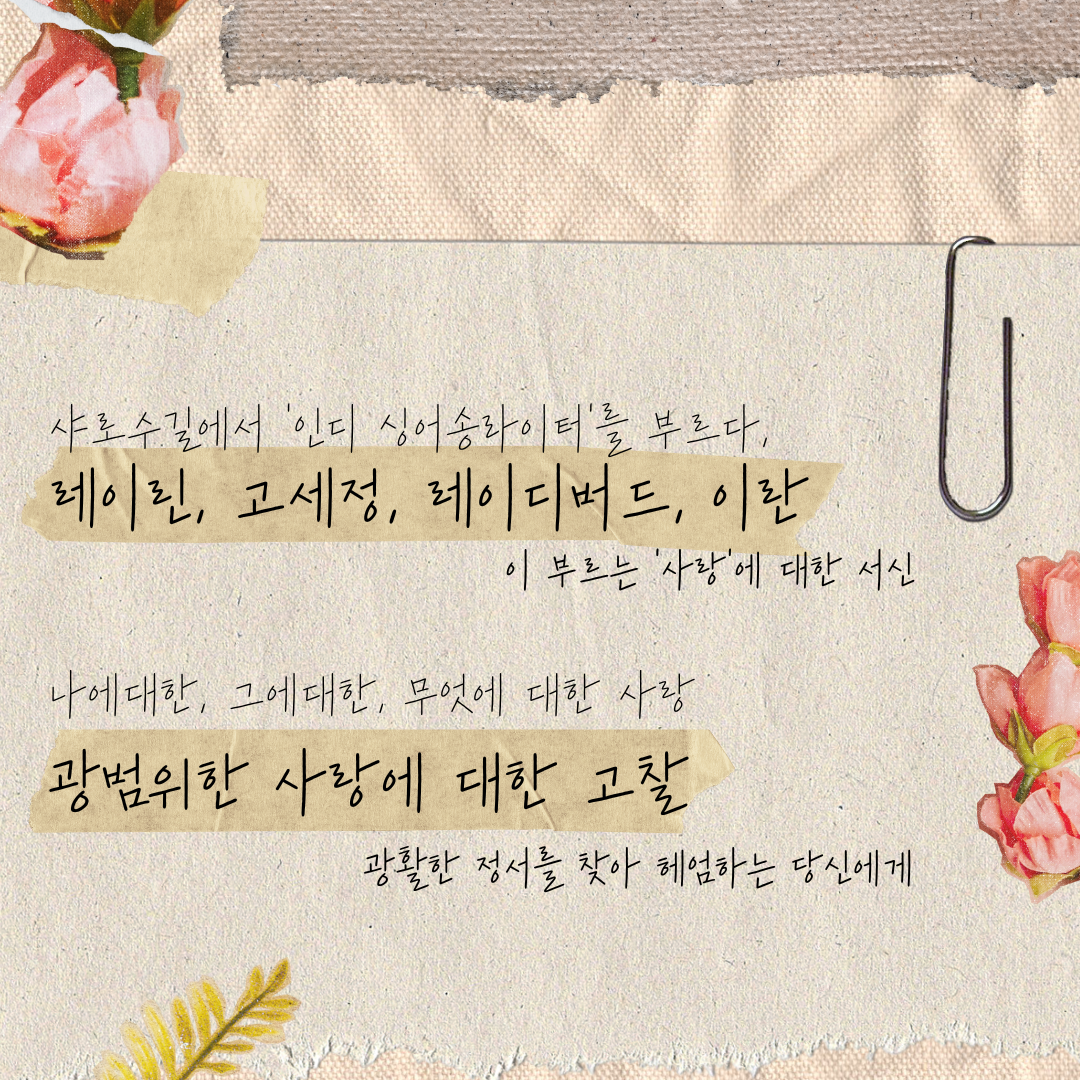 샤로수길에서 '인디 싱어송라이터'를 부르다,
레이린, 고세정, 레이디버드, 이란
이 부르는 '사랑'에 대한 서신
나에대한, 그에대한, 무엇에 대한 사랑
광범위한 사랑에 대한 고찰
광활한 정서를 찾아 헤엄하는 당신에게